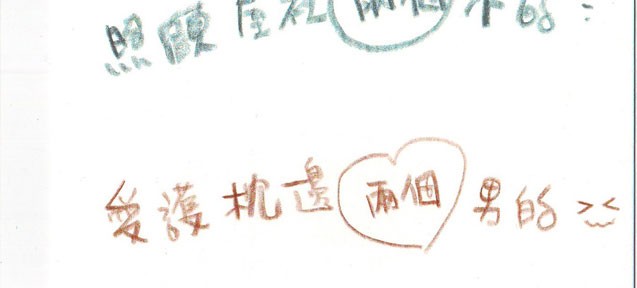 照顧兩個的
愛護枕邊兩個男的 ><